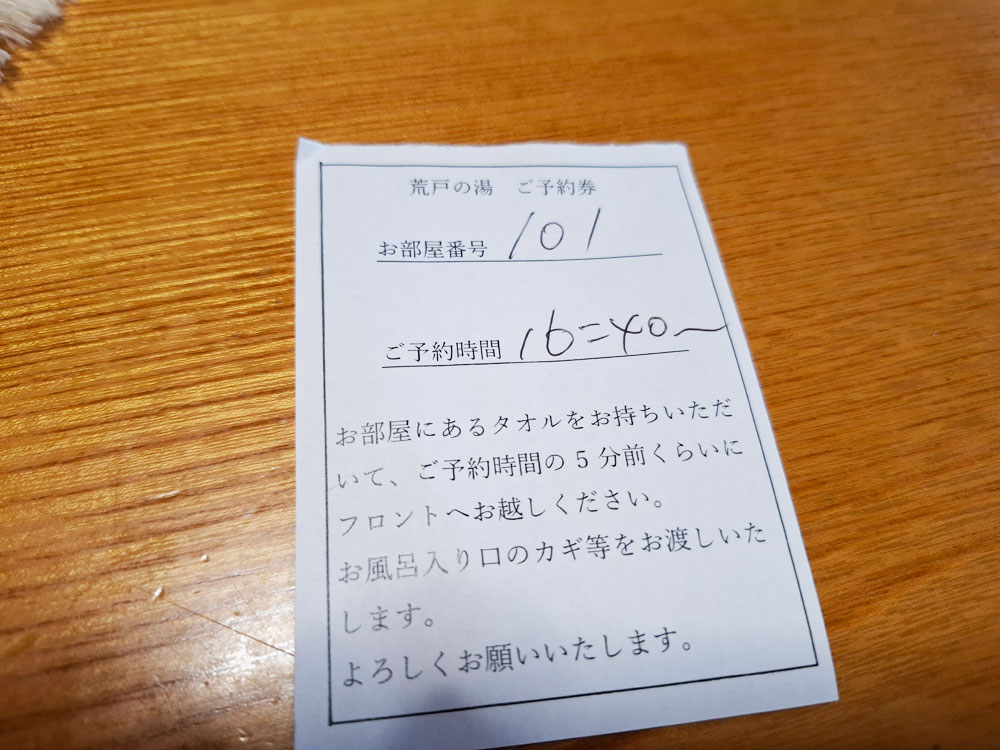 荒戸の湯　ご予約券
お部屋番号 101
ご予約時間 16=40〜
お部屋にあるタオルをお持ちいただ
いて、ご予約時間の5分前くらいに
フロントへお越しください。
お風呂入り口のカギ等をお渡しいた
します。
よろしくお願いいたします。